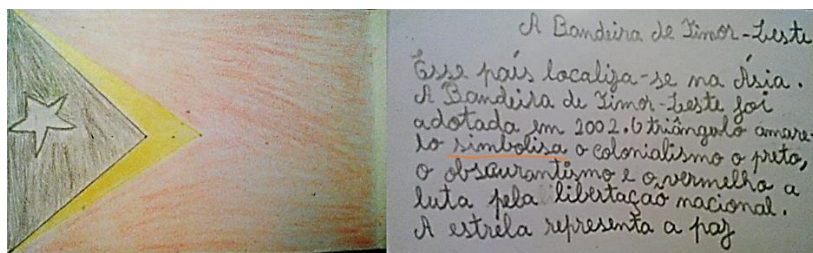 A Bandeira de Timor-Leste
Esse país localiza-se na Ásia.
A Bandeira de Timor-Leste foi
adotada em 2002. O triângulo amare-
lo simbolisa o colonialismo o preto,
o obscurantismo e o vermelho a
luta pela libertação nacional.
A estrela representa a paz